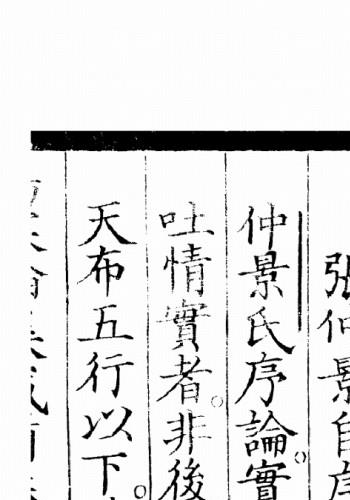 張仲景自序
仲景氏序論。實
吐情實者。非後
天布五行以下。